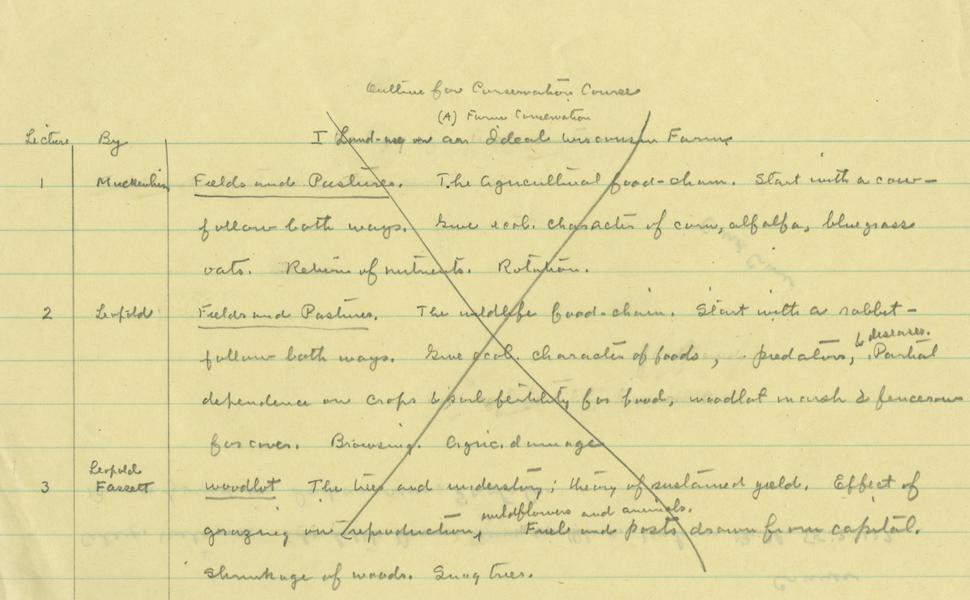 Outline for Conservation Course
(A) Farm Conservation
Lecture By I Land-use on an Ideal Wisconsin Farm
1 Muckenhirn Fields and Pastures. The agricultural food-chain. Start with a cow-
follow both ways. Give ecol. character of corn, alfalfa, bluegrass
oats. Return of nutrients. Rotation.
2 Leopold Fields and Pastures. The wildlife food-chain. Start with a rabbit-
& diseases.
follow both ways. Give ecol. character of foods, predators, Partial
dependence on crops & soil fertility for food, woodlot marsh & fencerows
for cover. Browsing. Agric. damage
Leopold
3 Fassett Woodlot The trees and understory; theory of sustained yield. Effect of
wildflowers and animals.
grazing on reproduction, Fuel and posts drawn from capital.
Shrinkage of woods. Snag trees.